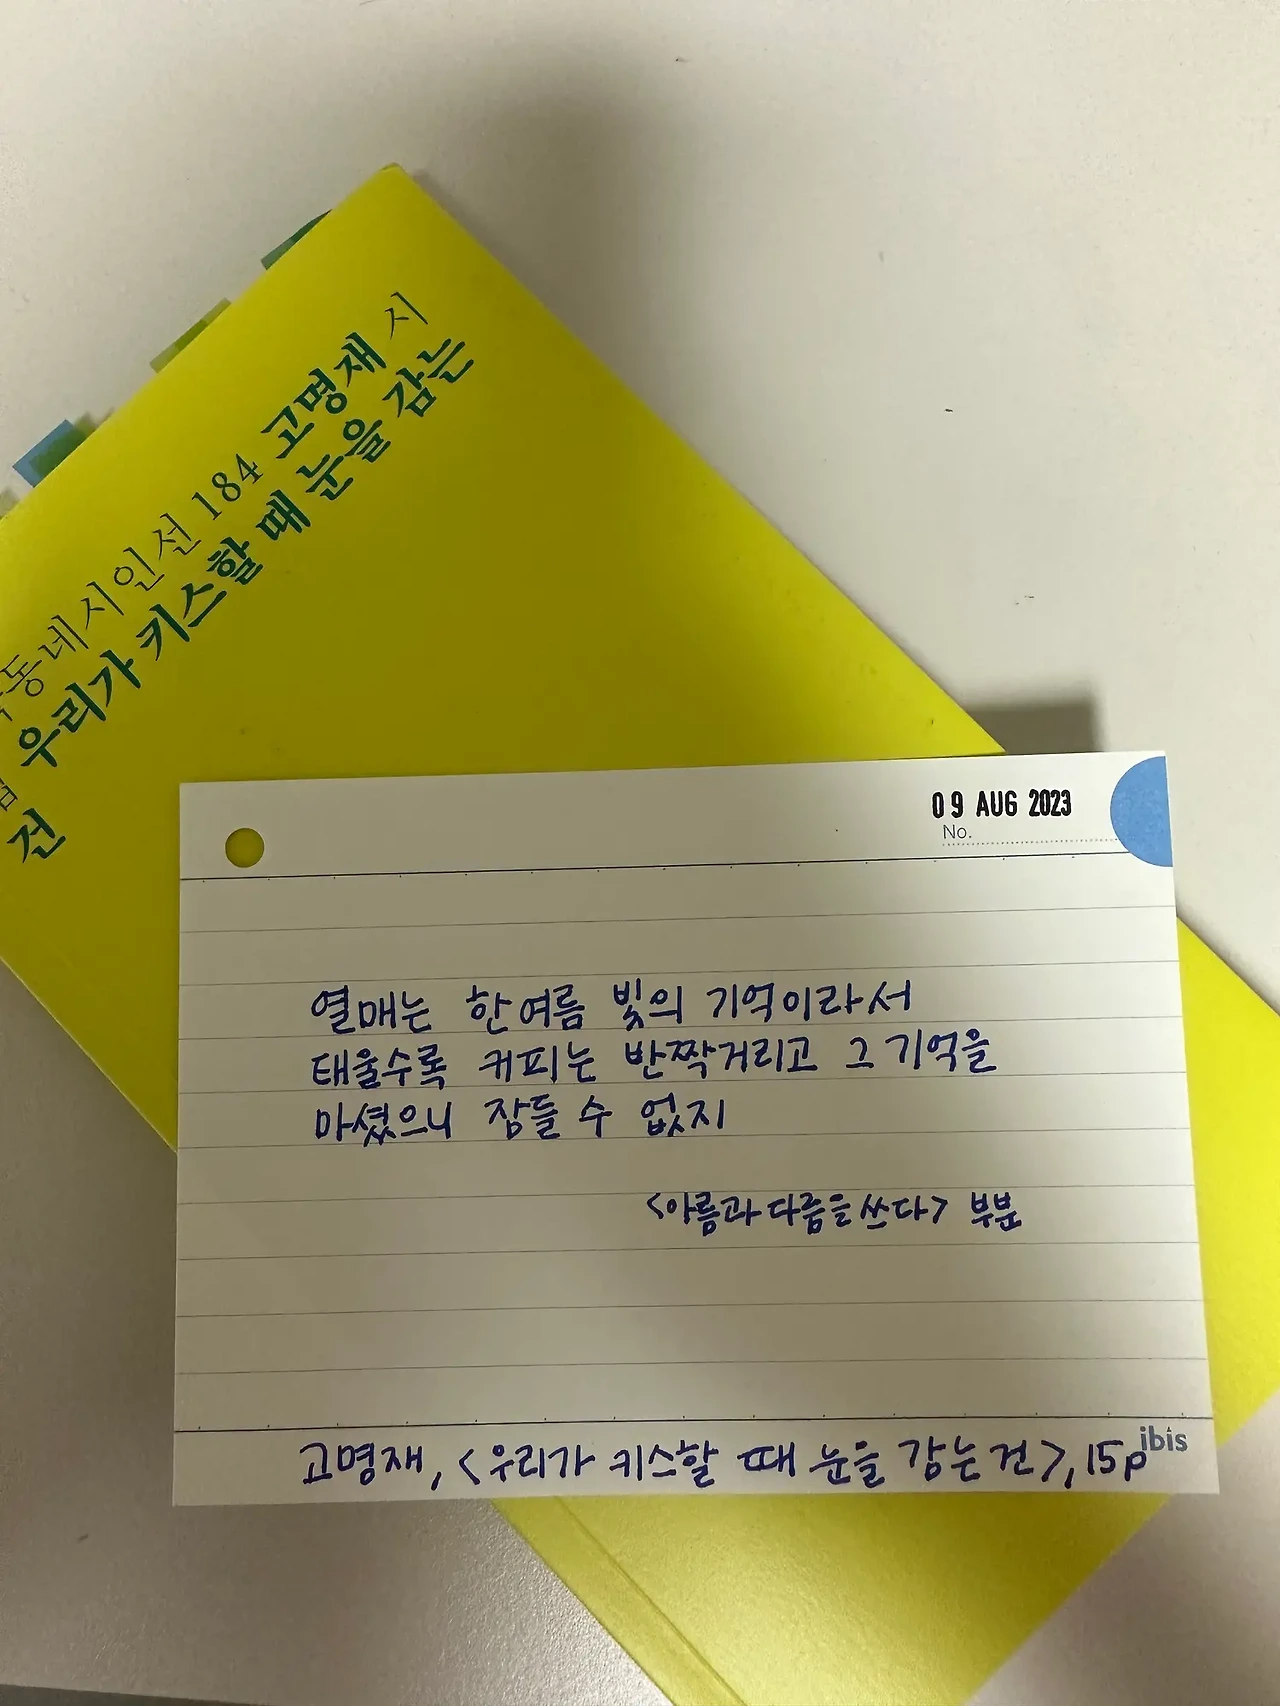 동네시인선 184 고명재 시
우리가 키스할 때 눈을 감는
건
09 AUG 2023
No.
열매는 한여름 빛의 기억이라서
태울수록 커피는 반짝거리고 그 기억을
마셨으니 잠들 수 없지
<아름과 다름을 쓰다> 부분
고명재, <우리가 키스할 때 눈을 감는 건>, 15p
ibis